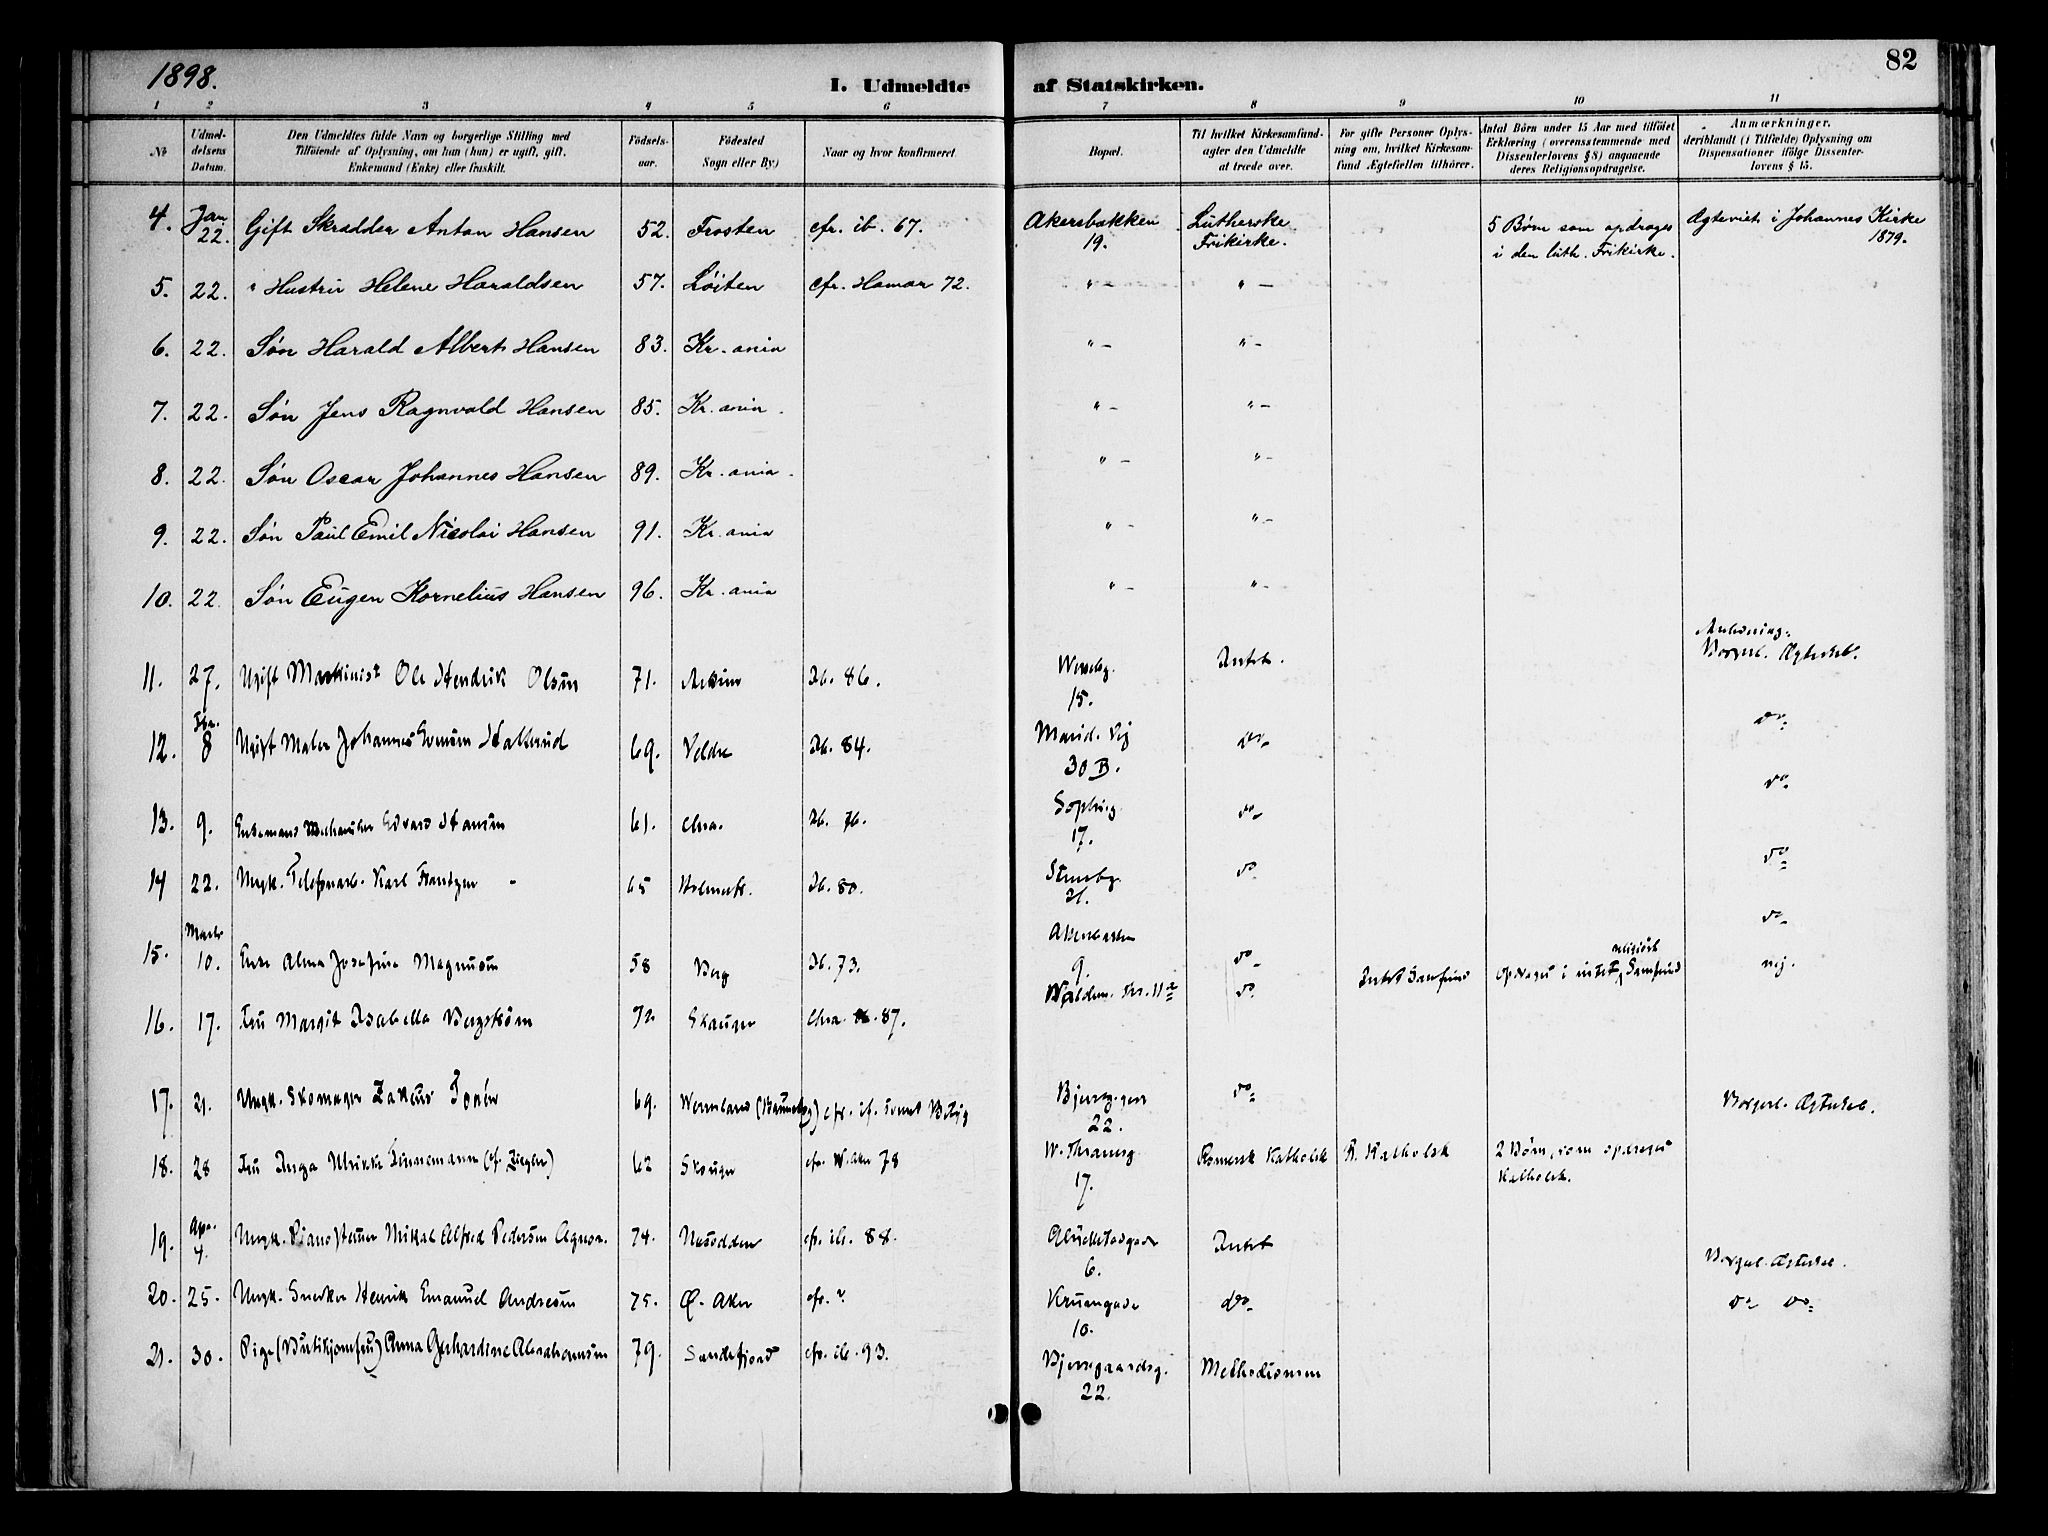 1898.
I. Udmeldte af Statskirken.
82
1 2 3 4 5 6 7 8 9 10 11
No
Udmel-
delsens
Datum.
Den Udmeldtes fulde Navn og borgerlige Stilling med
Tilföiende af Oplysning, om han (hun) er ugift, gift,
Enkemand (Enke) eller fraskilt.
Födsels-
aar.
Födested
Sogn eller By.)
Naar og hvor konfirmeret
Bopæl.
Til hvilket Kirkesamfund-
agter den Udmeldte
at træde over.
For gifte Personer Oplys-
ning om, hvilket Kirkesam-
fund Ægtefællen tilhörer.
Antal Börn under 15 Aar med tilföiet
Erklæring (overensstemmende med
Dissenterlovens § 8) angaaende
deres Religionsopdragelse.
Anmærkninger,
deriblandt (i Tilfælde) Oplysning om
Dispensationer ifölge Dissenter-
lovens § 15.
4. Jan 22. Gift Skrædder Anton Hansen 52. Frosten cfr. ib. 67. Akersbakken 19. Lutherske Frikirke. 5 Børn som opdrages i den luth. Frikirke. Ægteviet i Johannes Kirke 1879.
5. 22. " Hustru Helene Haraldsen 57. Løiten cfr. Hamar 72. " - " -
6. 22. Søn Harald Albert Hansen 83. Kr.ania " - " -
7. 22. Søn Jens Ragnvald Hansen 85. Kr.ania. " - " -
8. 22. Søn Oscar Johannes Hansen 89. Kr.ania. " - " -
9. 22. Søn Paul Emil Nicolai Hansen 91. Kr.ania " - " -
10. 22. Søn Eugen Kornelius Hansen 96. Kr.ania " - " -
11. 27. Ugift Maskinist Ole Hendrik Olsen 71. Askim Ib. 86. 15. Intet. Anledning: Borgerl. Ægteskab.
12. Fbr. 8 Ugift Maler Johannes Evensen 69. Veldre Ib. 84. Marid. Vej 30 B. do do
13. 9. Enkemand Edvard Hansen 61. Chra. Ib. 76. Sofiesg. 17. do do
14 22. Ungk. Telefonarb. Karl Frantzen 65 Holmestr. Ib. 80. Steensg. 21. do do
15. Marts 10. Enke Alma Josefine Magnusen 58 Berg Ib. 73. Akersbakken 9. do do
16. 17. Fru Margit Isabella Bergstrøm 72 Skauger Chra. 87. Waldem. Thr. 11 do Intet Samfund opdrages i intet religiøst Samfund nej.
17. 21. Ungk. Skomager Zakeus Torén 69. Wermland cfr. if. svensk 22. do Borgerl. Ægteskab.
18. 28 Fru Inga Ulrikke Linnemann (f. Ziegler) 62 Skouger cfr. V. Aker 78 W. Thranesg. 17. Romersk Katholsk R. Katholsk 2 Børn, som opdrages Katholsk.
19. Apr. 4. Ungk. Mikal Alfred Pedersen 74. Nesodden cfr. ib. 88. 6. Intet Borgerl. Ægteskab.
20. 25. Ungk. Snedker Henrik Emanuel Andresen 75. Ø. Aker cfr. ? 10. do do do
21. 30. Pige (Butikjomfru) Anna Gerhardine Abrahamsen 79. Sandefjord cfr. ib. 93. Bjerregaardsg. 22. Methodismen